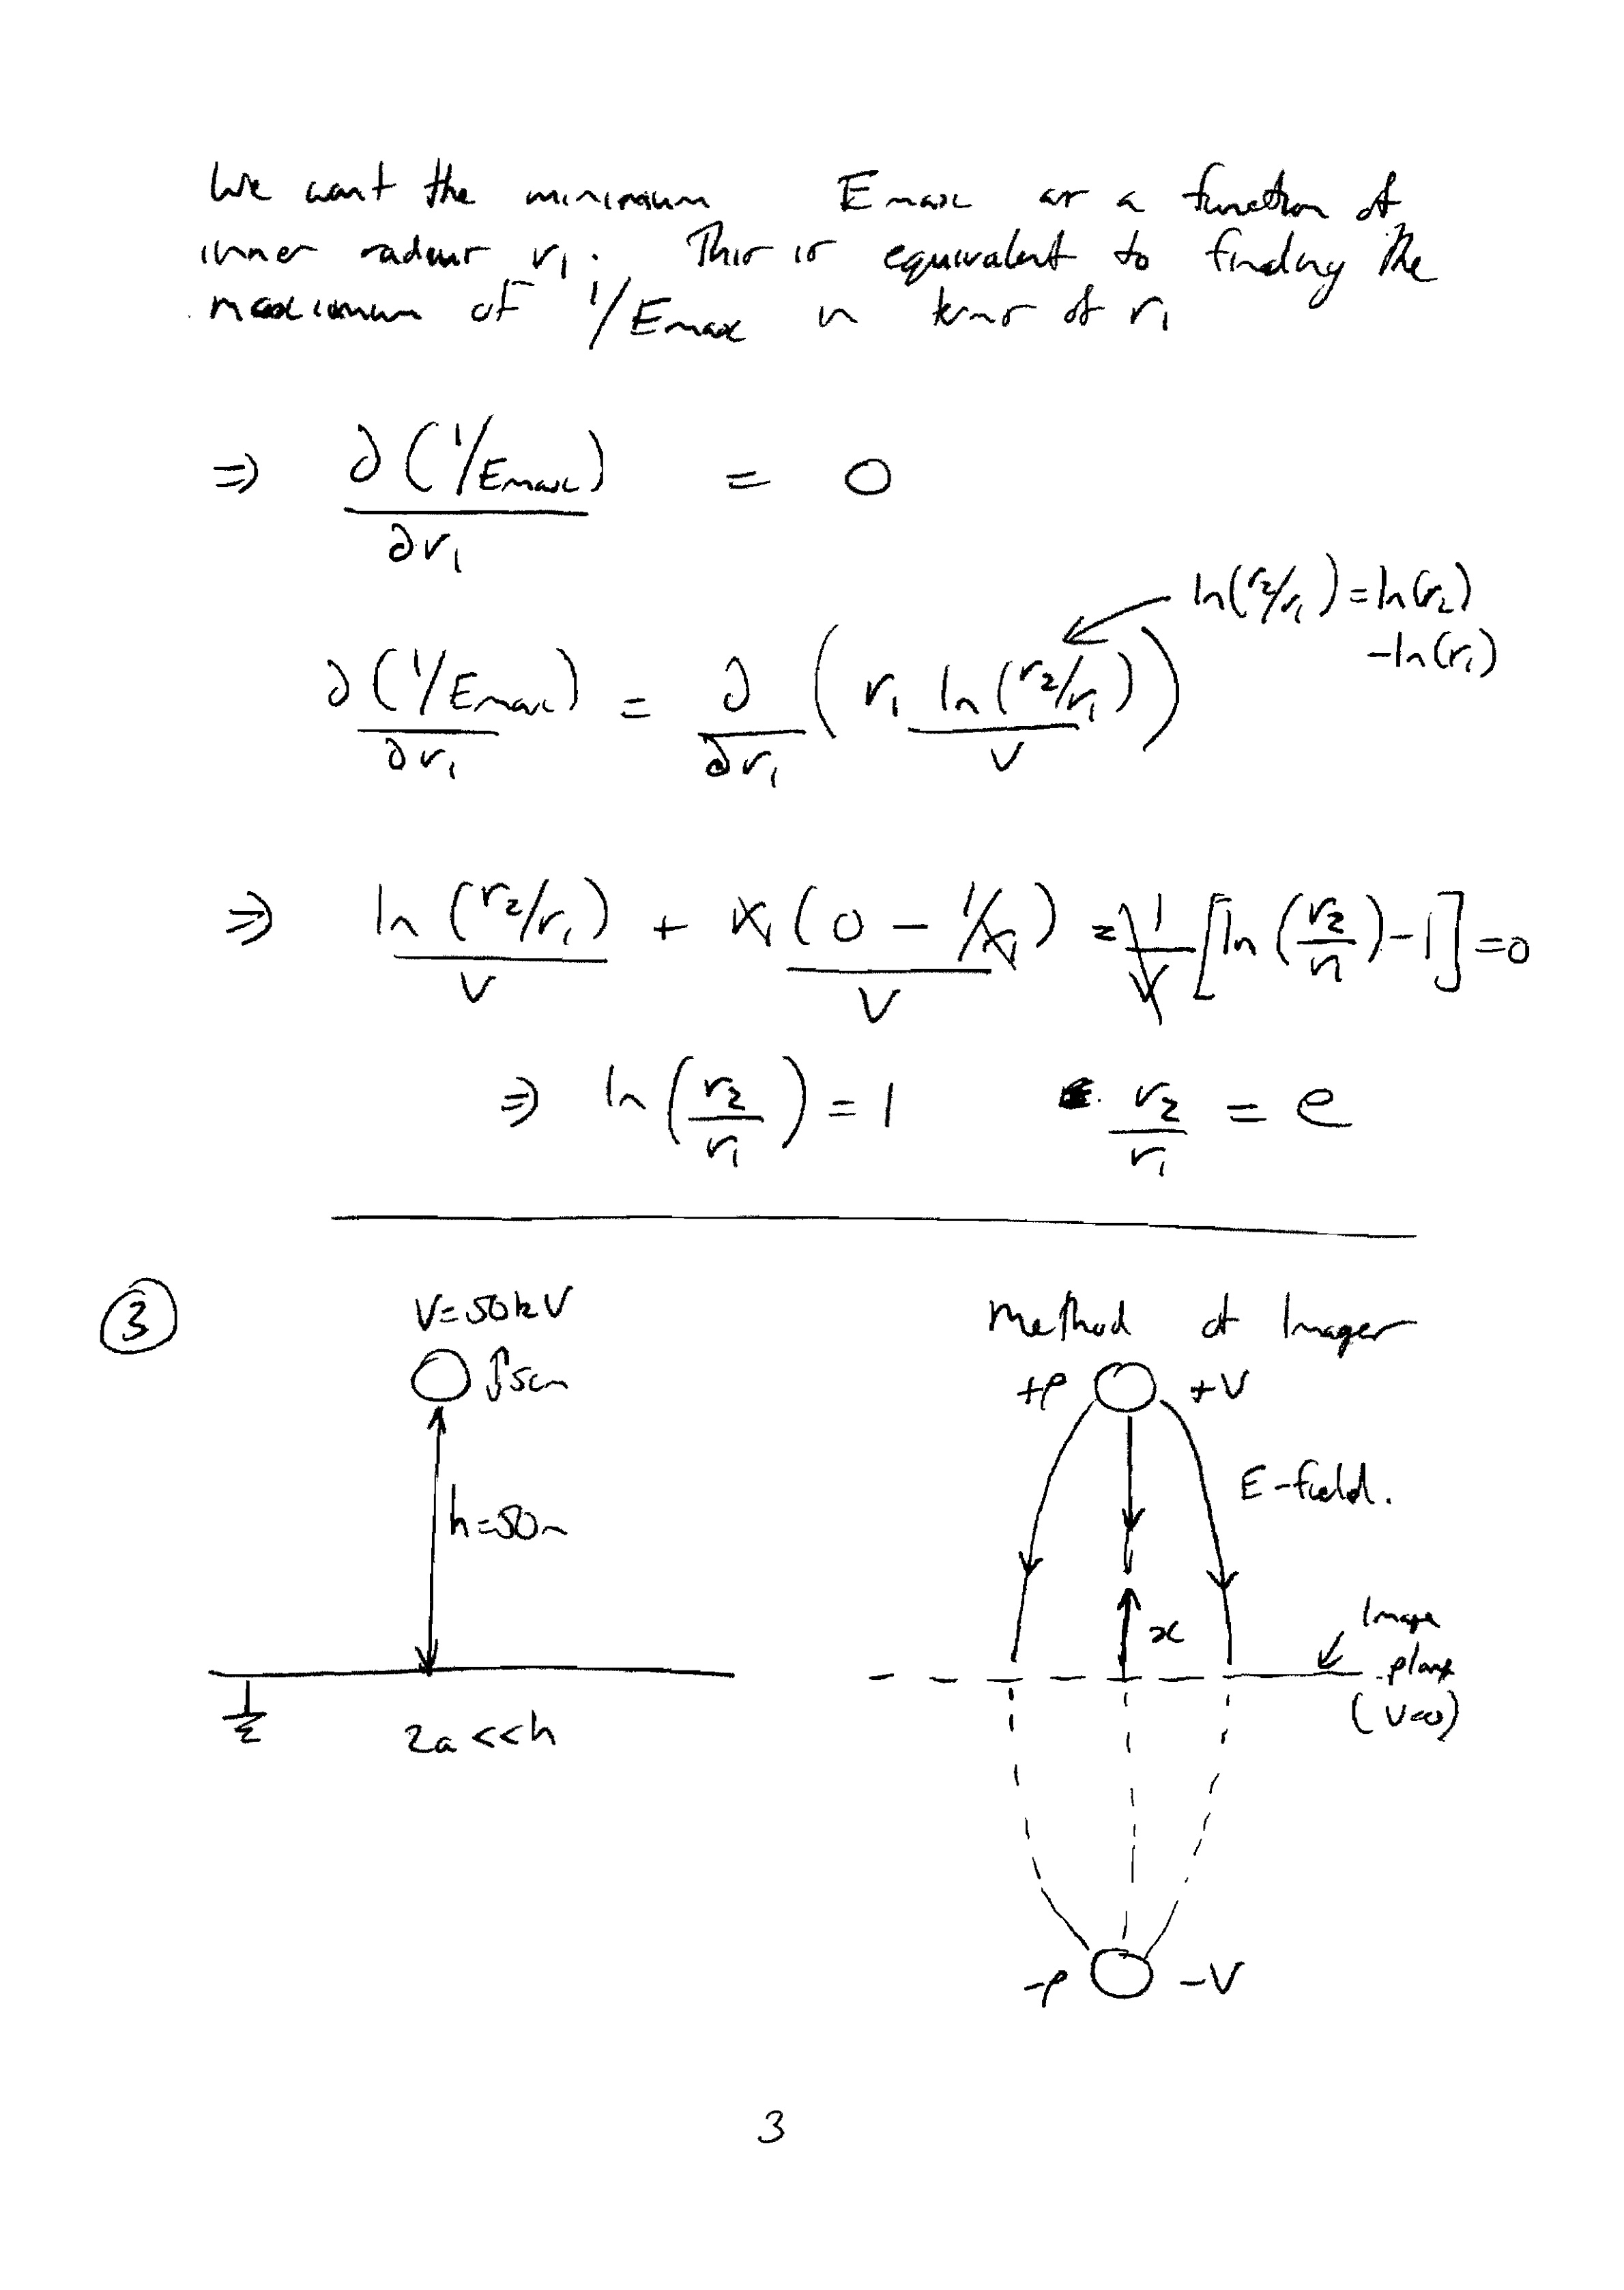 We want the minimum Emax as a function of
inner radius r₁. This is equivalent to finding the
maximum of 1/Emax in terms of r₁
⇒ ∂(1/Emax)/∂r₁ = 0
ln(r₂/r₁) = ln(r₂)
-ln(r₁)
∂(1/Emax)/∂r₁ = ∂/∂r₁ (r₁ ln(r₂/r₁)/V)
⇒ ln(r₂/r₁)/V + r₁(0 - 1/r₁)/V = 1/V [ln(r₂/r₁) - 1] = 0
⇒ ln(r₂/r₁) = 1 r₂/r₁ = e
③ V=50kV Method of Images
↕5cm +ρ +V
E-field.
h=50m
x
Image
plane
(V=0)
2a << h
-ρ -V
3